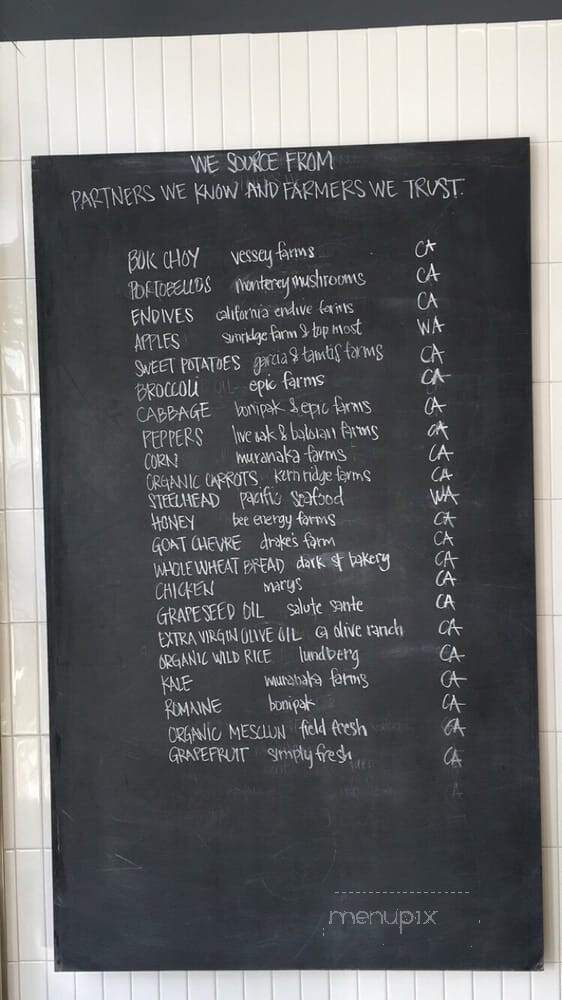 WE SOURCE FROM
PARTNERS WE KNOW AND FARMERS WE TRUST.
BOK CHOY vessey farms CA
PORTOBELLOS monterey mushrooms CA
ENDIVES california endive farms CA
APPLES sunridge farm & top most WA
SWEET POTATOES garcia & farms CA
BROCCOLI epic farms CA
CABBAGE bonipak & epic farms CA
PEPPERS live oak & farms CA
CORN muranaka farms CA
ORGANIC CARROTS kern ridge farms CA
STEELHEAD pacific seafood WA
HONEY bee energy farms CA
GOAT CHEVRE drake's farm CA
WHOLE WHEAT BREAD dark st bakery CA
CHICKEN marys CA
GRAPESEED OIL salute sante CA
EXTRA VIRGIN OLIVE OIL ca olive ranch CA
ORGANIC WILD RICE lundberg CA
KALE muranaka farms CA
ROMAINE bonipak CA
ORGANIC MESCLUN field fresh CA
GRAPEFRUIT simply fresh CA
menupix